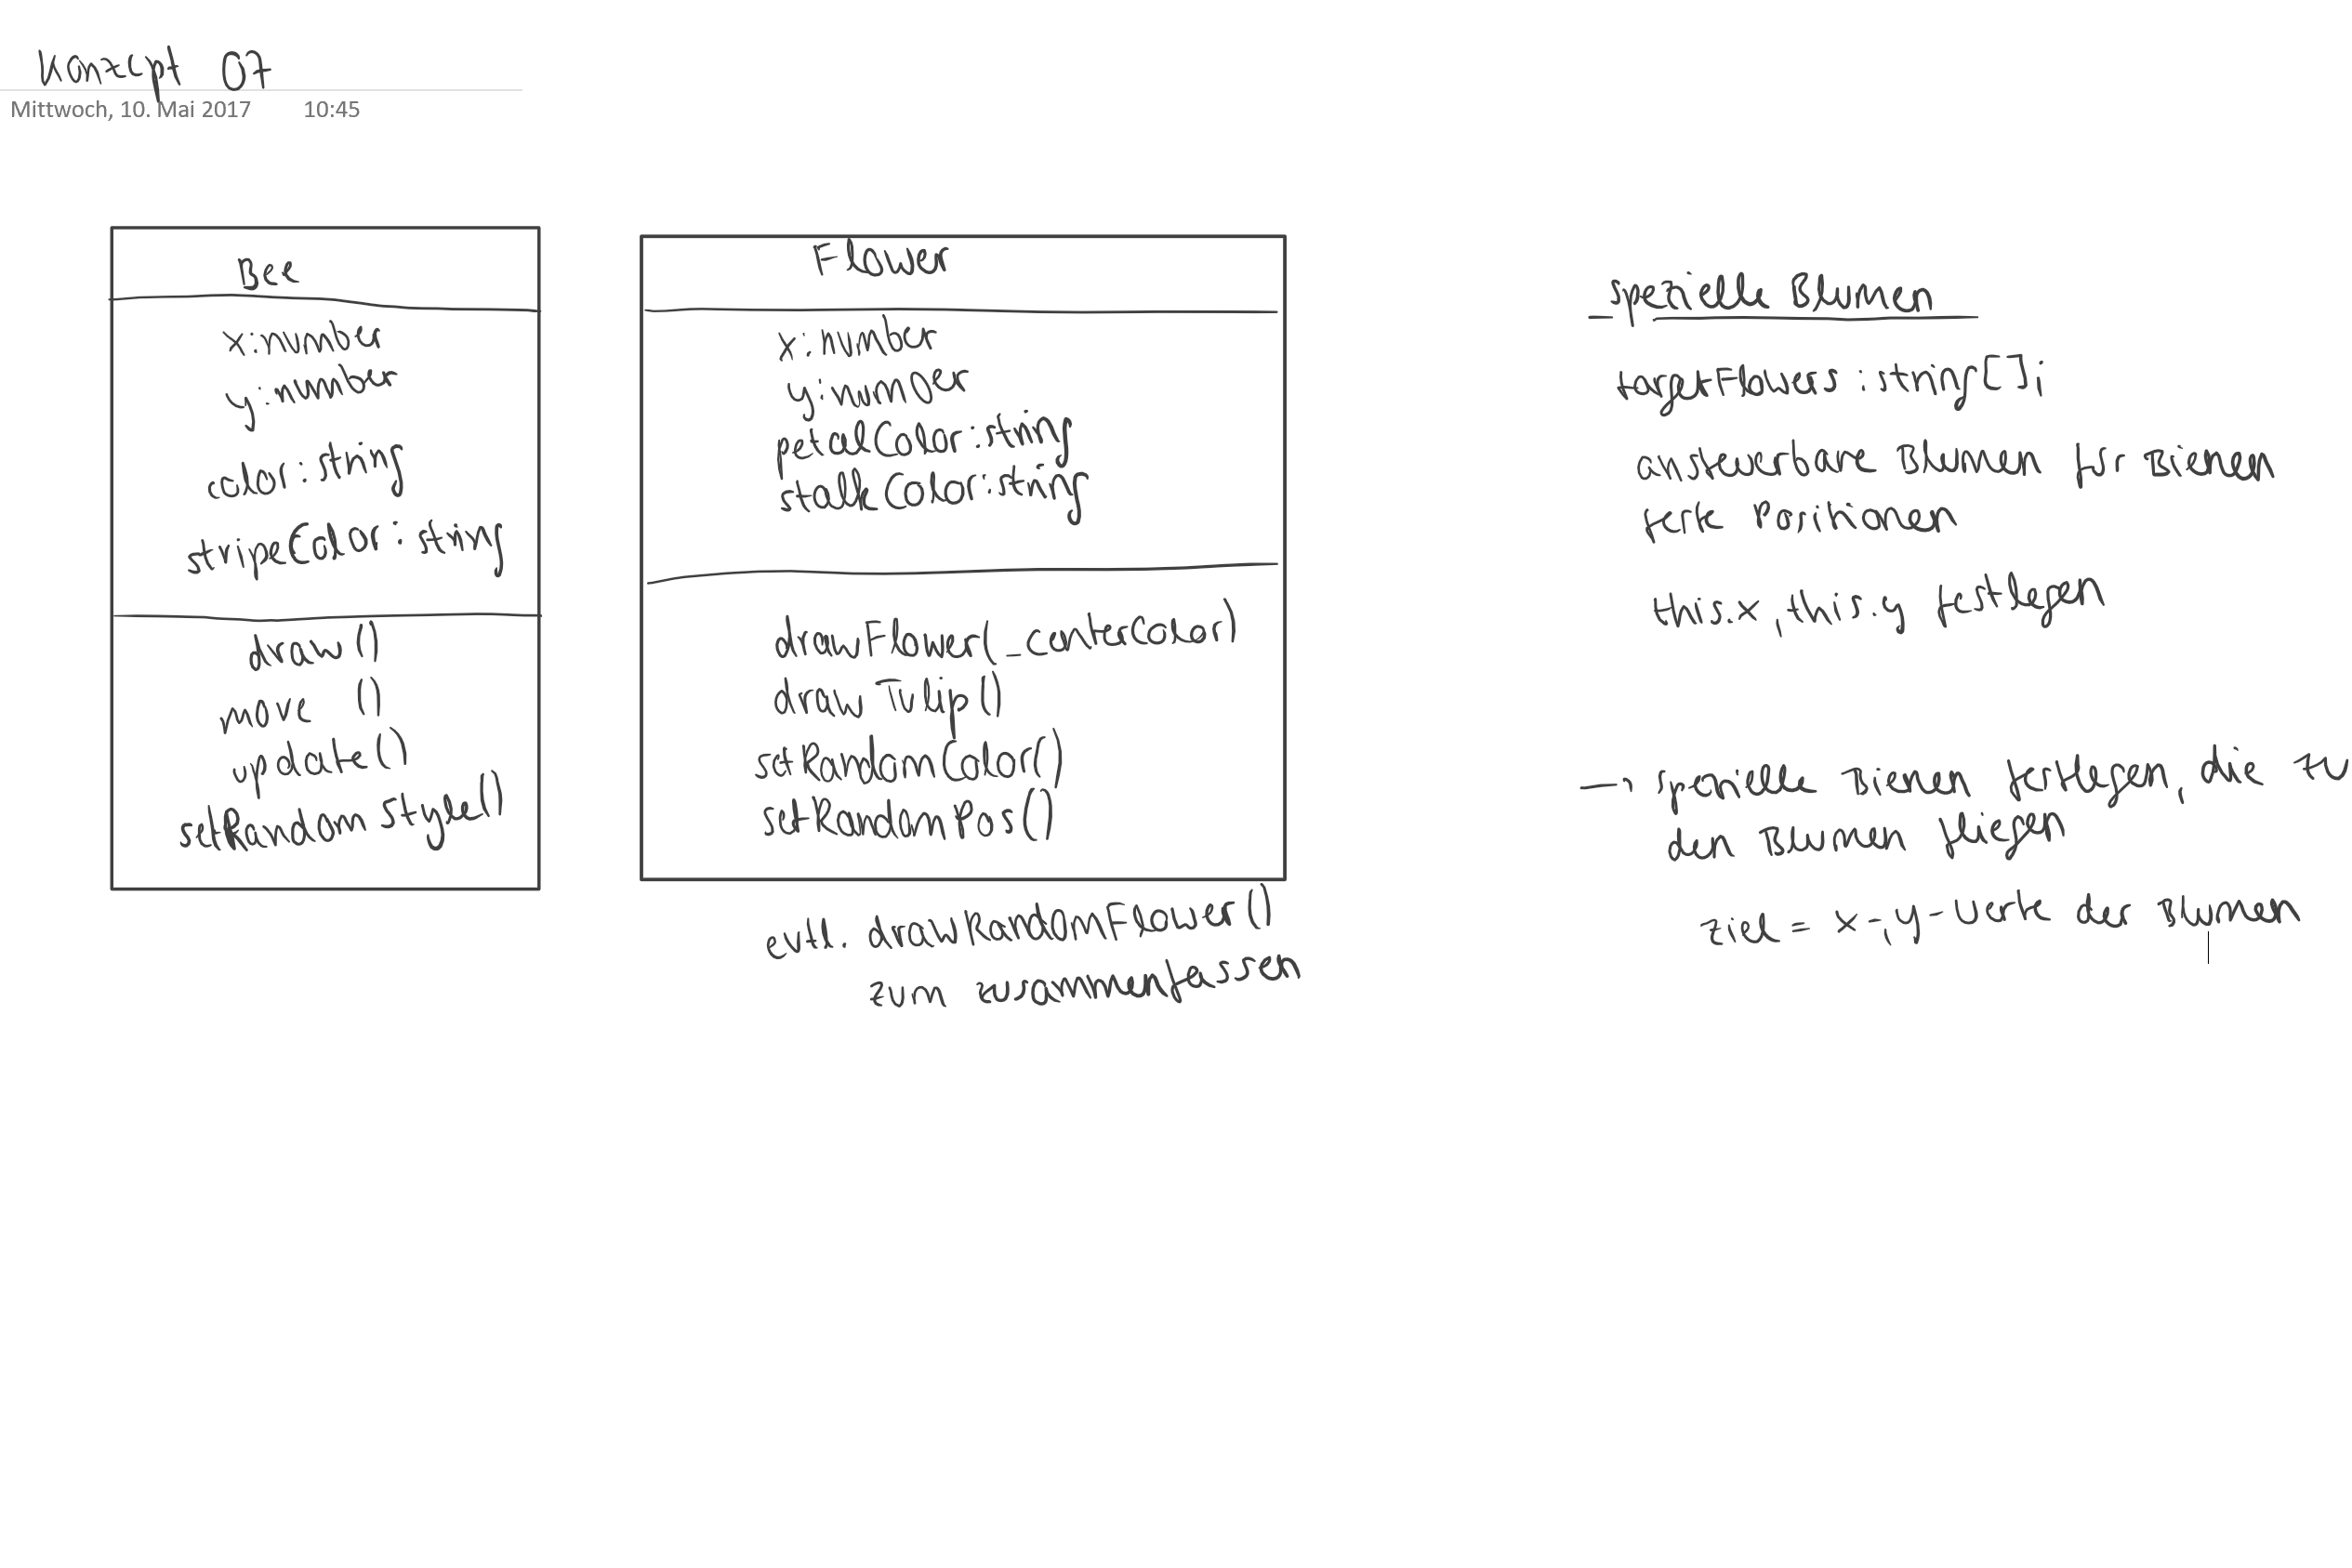 Konzept 07
Mittwoch, 10. Mai 2017 10:45
Bee
x:number
y:number
color:string
stripeColor:string
draw()
move ()
update()
setRandomStyle()
Flower
x:number
y:number
petalColor:string
stalkColor:string
drawFlower(_centerColor)
drawTulip()
setRandomColor()
setRandomPos()
evtl. drawRandomFlower()
zum zusammenfassen
spezielle Blumen
targetFlowers:string[];
ansteuerbare Blumen für Bienen
feste Positionen
this.x, this.y festlegen
→ spezielle Bienen festlegen, die zu
den Blumen fliegen
Ziel = x-,y-Werte der Blumen